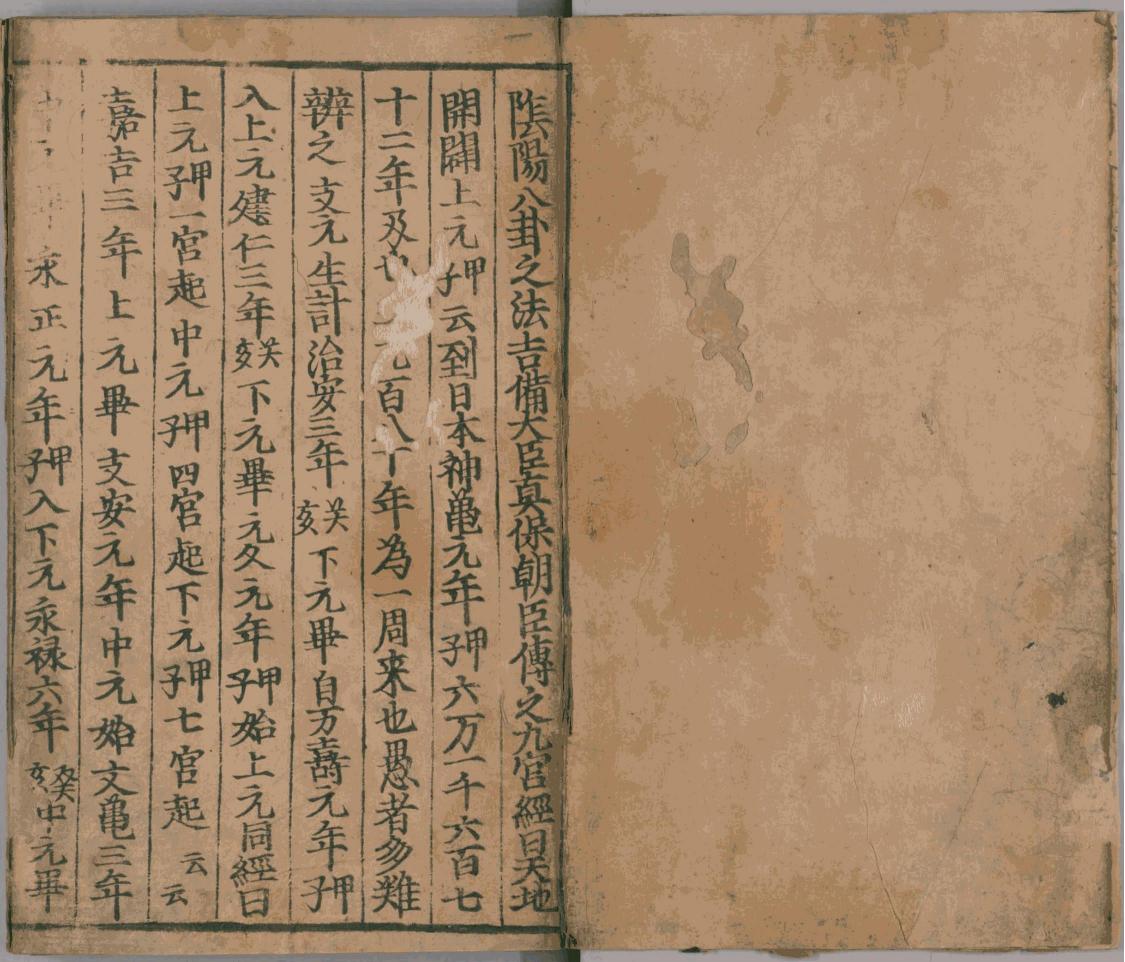 陰陽八卦之法吉備大臣真保朝臣傳之九宮經曰天地
開闢上元甲子云到日本神亀元年甲子六万一千六百七
十二年及也元百八十年為一周来也愚者多難
辨之支元生計治安三年癸亥下元畢自万壽元年甲子
入上元建仁三年癸亥下元畢元久元年甲子始上元同經曰
上元甲子一宮起中元甲子四宮起下元甲子七宮起云云
嘉吉三年上元畢文安元年中元始文亀三年
永正元年甲子入下元永禄六年癸亥中元畢